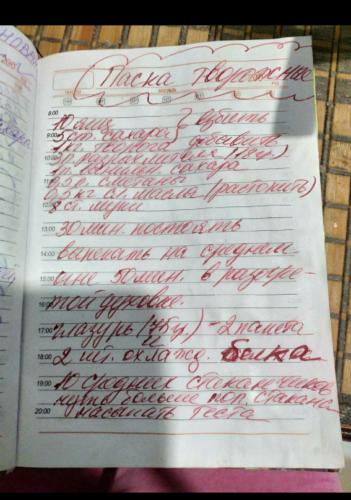 Паска творожная
8:00
10 яиц } взбить
9:00
3 ст. сахара
1 кг. творога добавить
10:00
3 п. разрыхлителя (18 гр)
1 п. ванилин. сахара
11:00
0,5 л. сметаны
0,5 кг сл. масла (растопить)
12:00
8 ст. муки
13:00
30 мин. постоять
14:00
выпекать на среднем
15:00
огне 50 мин. в разогре-
16:00
той духовке.
17:00
глазурь (75 гр) - 2 пакета
18:00
2 шт. охлажд. белка
19:00
10 средних стаканчиков
чуть больше пол. стакана
20:00
насыпать теста